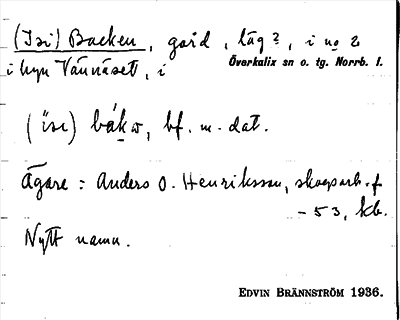 (Isi) Backen, gård, läg?, i no 2
i byn Vännäset, i Överkalix sn o. tg. Norrb. l.
(ìsı) bák w, bf. m. dat.
Ägare: Anders O. Henriksson, skogsarb. f
- 53, kb.
Nytt namn.
EDVIN BRÄNNSTRÖM 1936.